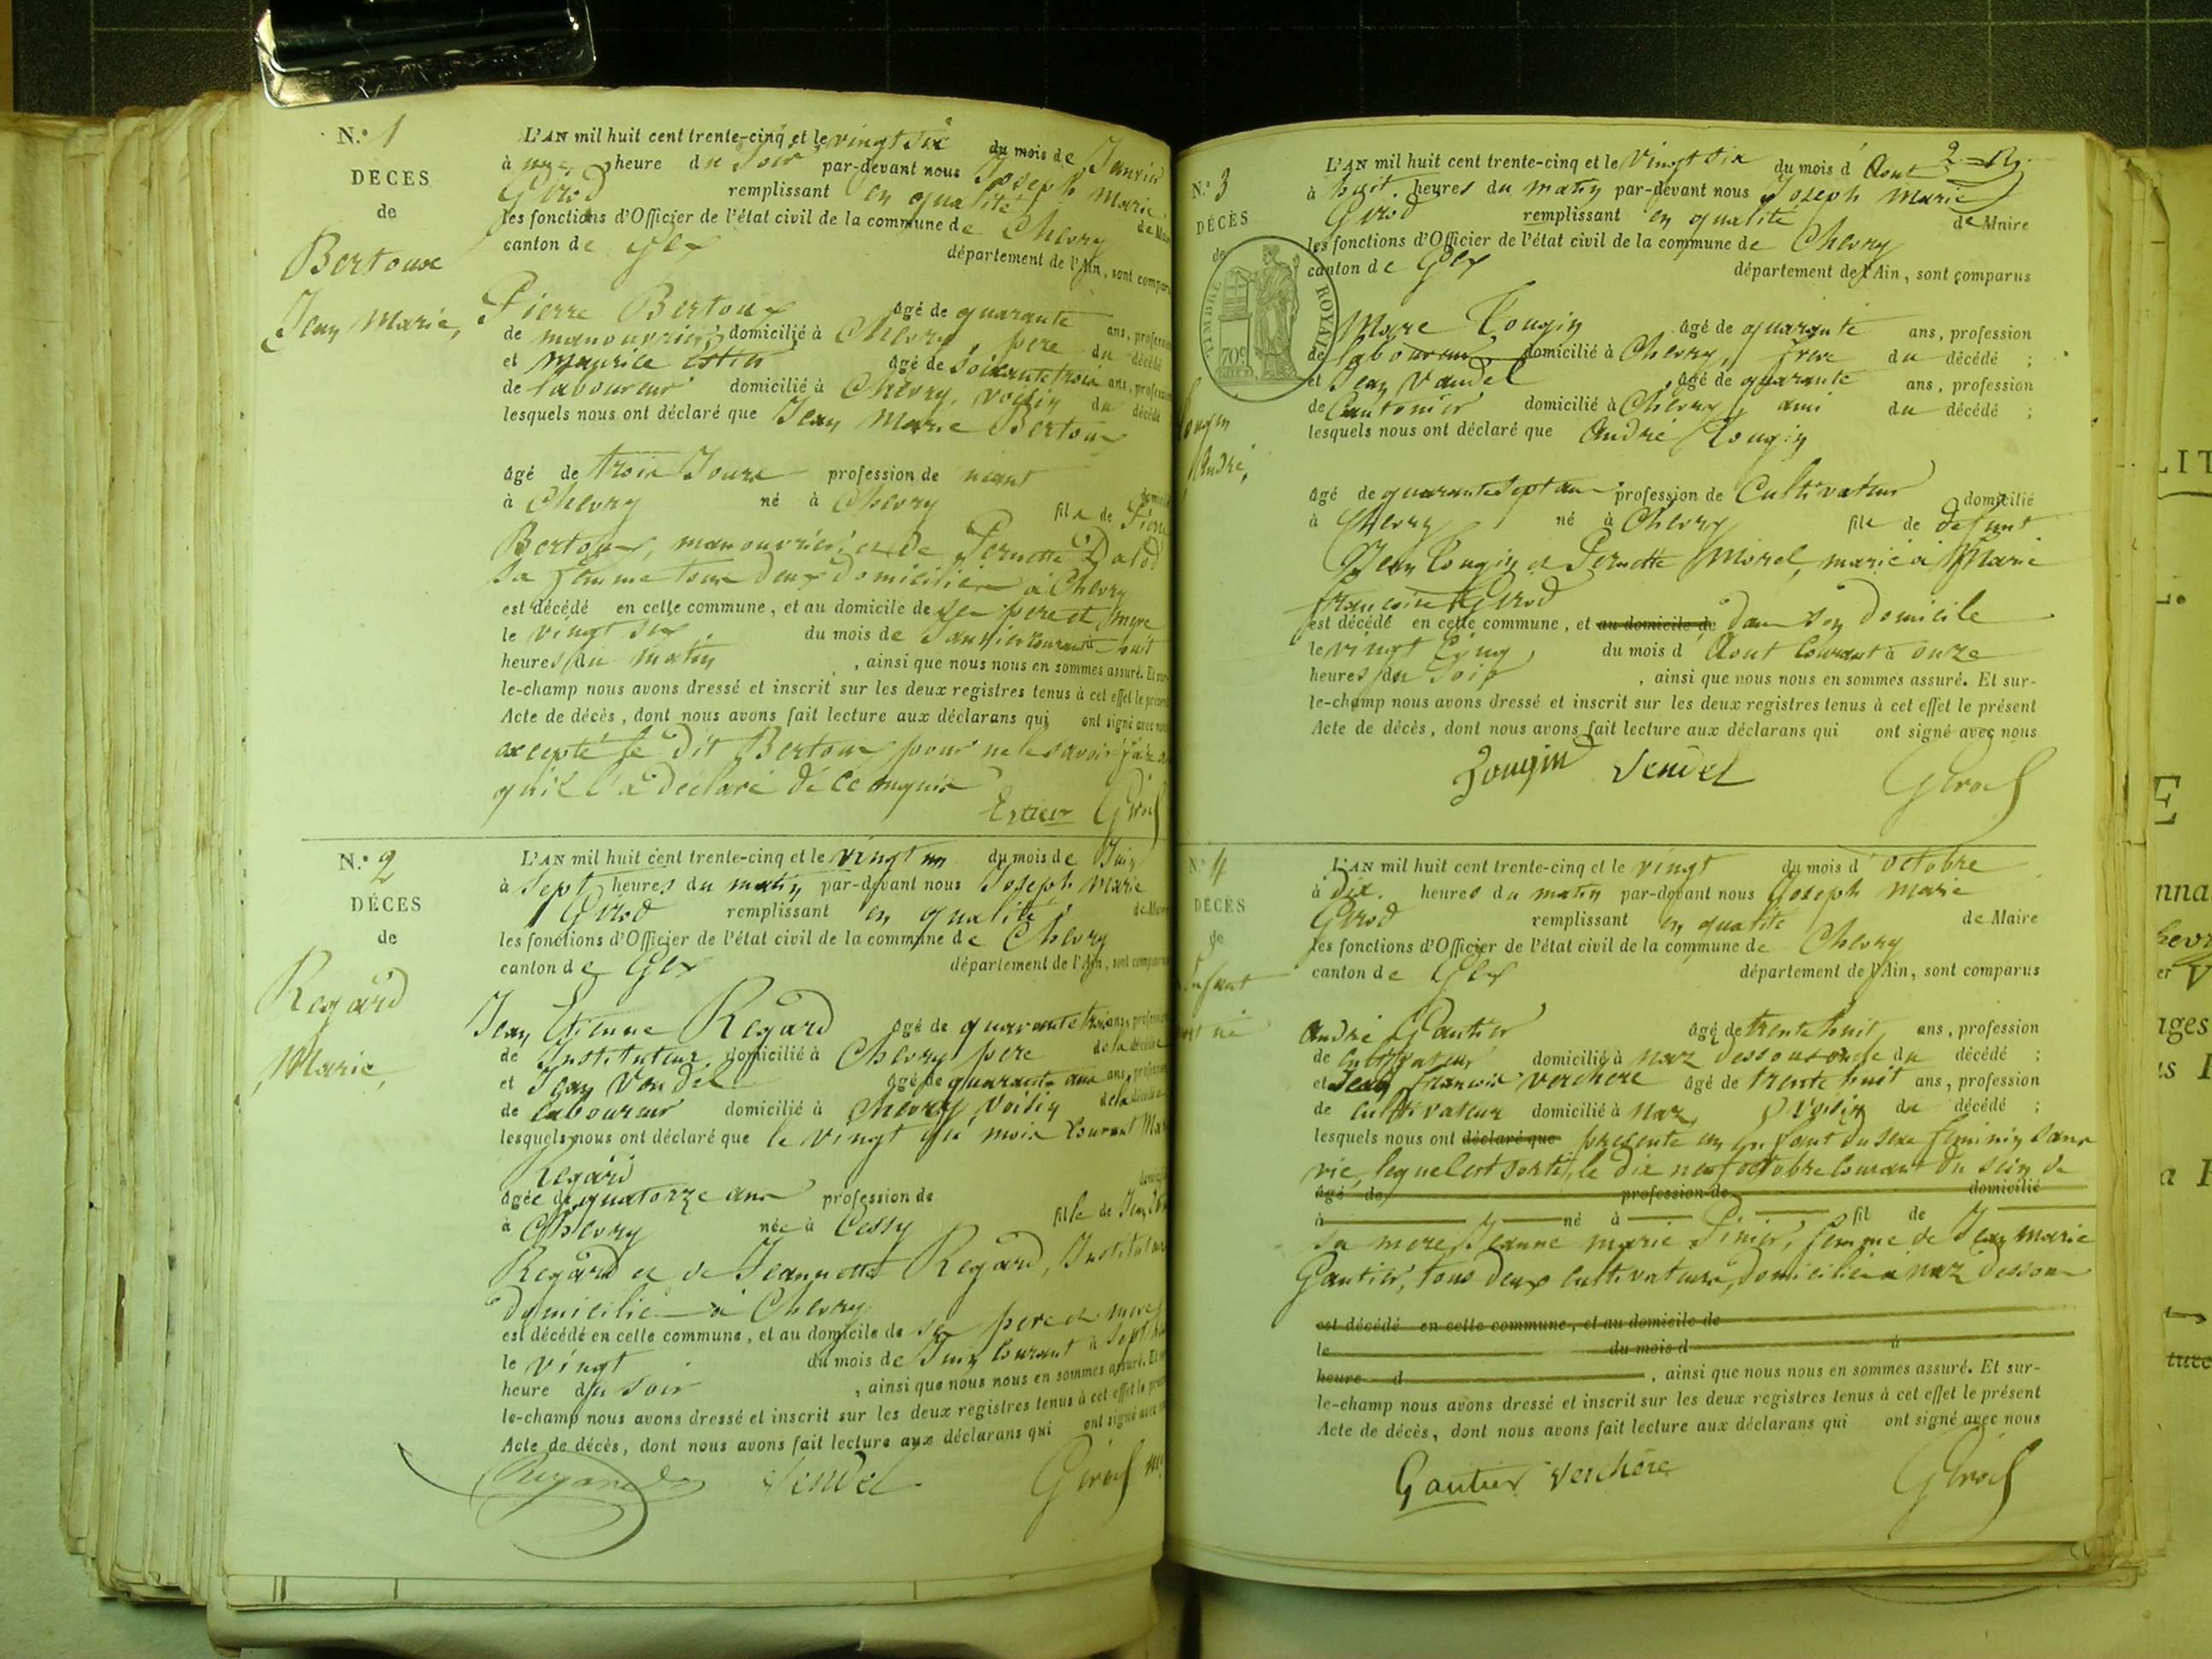 N.° 1
DÉCÈS
de
Bertoux
Jean Marie,
L'AN mil huit cent trente-cinq et le vingt six du mois de Janvier
à une heure du Soir par-devant nous Joseph Marie
Girod remplissant en qualité de Maire
les fonctions d'Officier de l'état civil de la commune de Chevry
canton de Gex département de l'Ain, sont comparus
Pierre Bertoux agé de quarante ans, profession
de manouvrier, domicilié à Chevry, pere du décédé
et Maurice Estier agé de soixante trois ans, profession
de laboureur domicilié à Chevry, voisin du décédé
lesquels nous ont déclaré que Jean Marie Bertoux
agé de trois Jours profession de néant
à Chevry né à Chevry fils de Pierre
Bertoux, manouvrier, et de Pernette Dalod
sa femme tous deux domiciliés à Chevry
est décédé en cette commune, et au domicile de ses pere et mere
le vingt six du mois de Janvier courant à huit
heures du matin, ainsi que nous nous en sommes assuré. Et sur-
le-champ nous avons dressé et inscrit sur les deux registres tenus à cet effet le présent
Acte de décès, dont nous avons fait lecture aux déclarans qui ont signé avec nous
excepté le dit Bertoux pour ne le savoir faire
qu'il l'a déclaré de ce enquis
Estier Girod
N.° 2
DÉCES
de
Regard
Marie,
L'AN mil huit cent trente-cinq et le vingt un du mois de Juin
à sept heures du matin par-devant nous Joseph Marie
Girod remplissant en qualité de Maire
les fonctions d'Officier de l'état civil de la commune de Chevry
canton de Gex département de l'Ain, sont comparus
Jean Etienne Regard agé de quarante trois ans, profession
de Instituteur domicilié à Chevry pere de la décédée
et Jean Vandel agé de quarante ans ans, profession
de laboureur domicilié à Chevry voisin de la décédée
lesquels nous ont déclaré que le vingt du mois courant
Regard
agée de quatorze ans profession de
à Chevry née à Cessy fille de Jean
Regard et de Jeannette Regard, Instituteur
domicilié à Chevry
est décédé en cette commune, et au domicile de ses pere et mere
le vingt du mois de Juin courant à sept
heure du soir, ainsi que nous nous en sommes assuré. Et sur-
le-champ nous avons dressé et inscrit sur les deux registres tenus à cet effet le présent
Acte de décès, dont nous avons fait lecture aux déclarans qui ont signé avec nous
Vendel Girod
N.° 3
DÉCÈS
de
TIMBRE ROYAL
70c
Lougin
André,
L'AN mil huit cent trente-cinq et le vingt six du mois d'Aout
à huit heures du matin par-devant nous Joseph Marie
Girod remplissant en qualité de Maire
les fonctions d'Officier de l'état civil de la commune de Chevry
canton de Gex département de l'Ain, sont comparus
Marc Lougin agé de quarante ans, profession
de laboureur domicilié à Chevry, frere du décédé ;
et Jean Vandel, agé de quarante ans, profession
de Cantonier domicilié à Chevry, ami du décédé ;
lesquels nous ont déclaré que André Lougin
agé de quarante sept ans profession de Cultivateur domicilié
à Chevry né à Chevry fils de defunt
Jean Lougin et Pernette Morel, marié à Marie
francoise Girod
est décédé en cette commune, et au domicile de dans son domicile
le vingt Cinq, du mois d Aout Courant à onze
heures du soir, ainsi que nous nous en sommes assuré. Et sur-
le-champ nous avons dressé et inscrit sur les deux registres tenus à cet effet le présent
Acte de décès, dont nous avons fait lecture aux déclarans qui ont signé avec nous
Lougin Vendel Girod
N.° 4
DÉCÈS
de
Enfant
mort né
L'AN mil huit cent trente-cinq et le vingt du mois d'octobre
à Dix heures du matin par-devant nous Joseph Marie
Girod remplissant en qualité de Maire
les fonctions d'Officier de l'état civil de la commune de Chevry
canton de Gex département de l'Ain, sont comparus
André Gautier agé de trente huit, ans, profession
de cultivateur domicilié à Naz dessous oncle du décédé ;
et Jean francois Verchere agé de trente huit ans, profession
de cultivateur domicilié à Naz, voisin du décédé ;
lesquels nous ont déclaré que présenté un Enfant du sexe feminin sans
vie, lequel est sorti, le dix neuf octobre courant du sein de
agé de profession de domicilié
à né à fil de
sa mere, Jeanne marie Pinier, femme de Jean marie
Gautier, tous deux cultivateurs, domiciliés à Naz dessous
est décédé en cette commune, et au domicile de
le du mois d à
heure d, ainsi que nous nous en sommes assuré. Et sur-
le-champ nous avons dressé et inscrit sur les deux registres tenus à cet effet le présent
Acte de décès, dont nous avons fait lecture aux déclarans qui ont signé avec nous
Gautier Verchère Girod